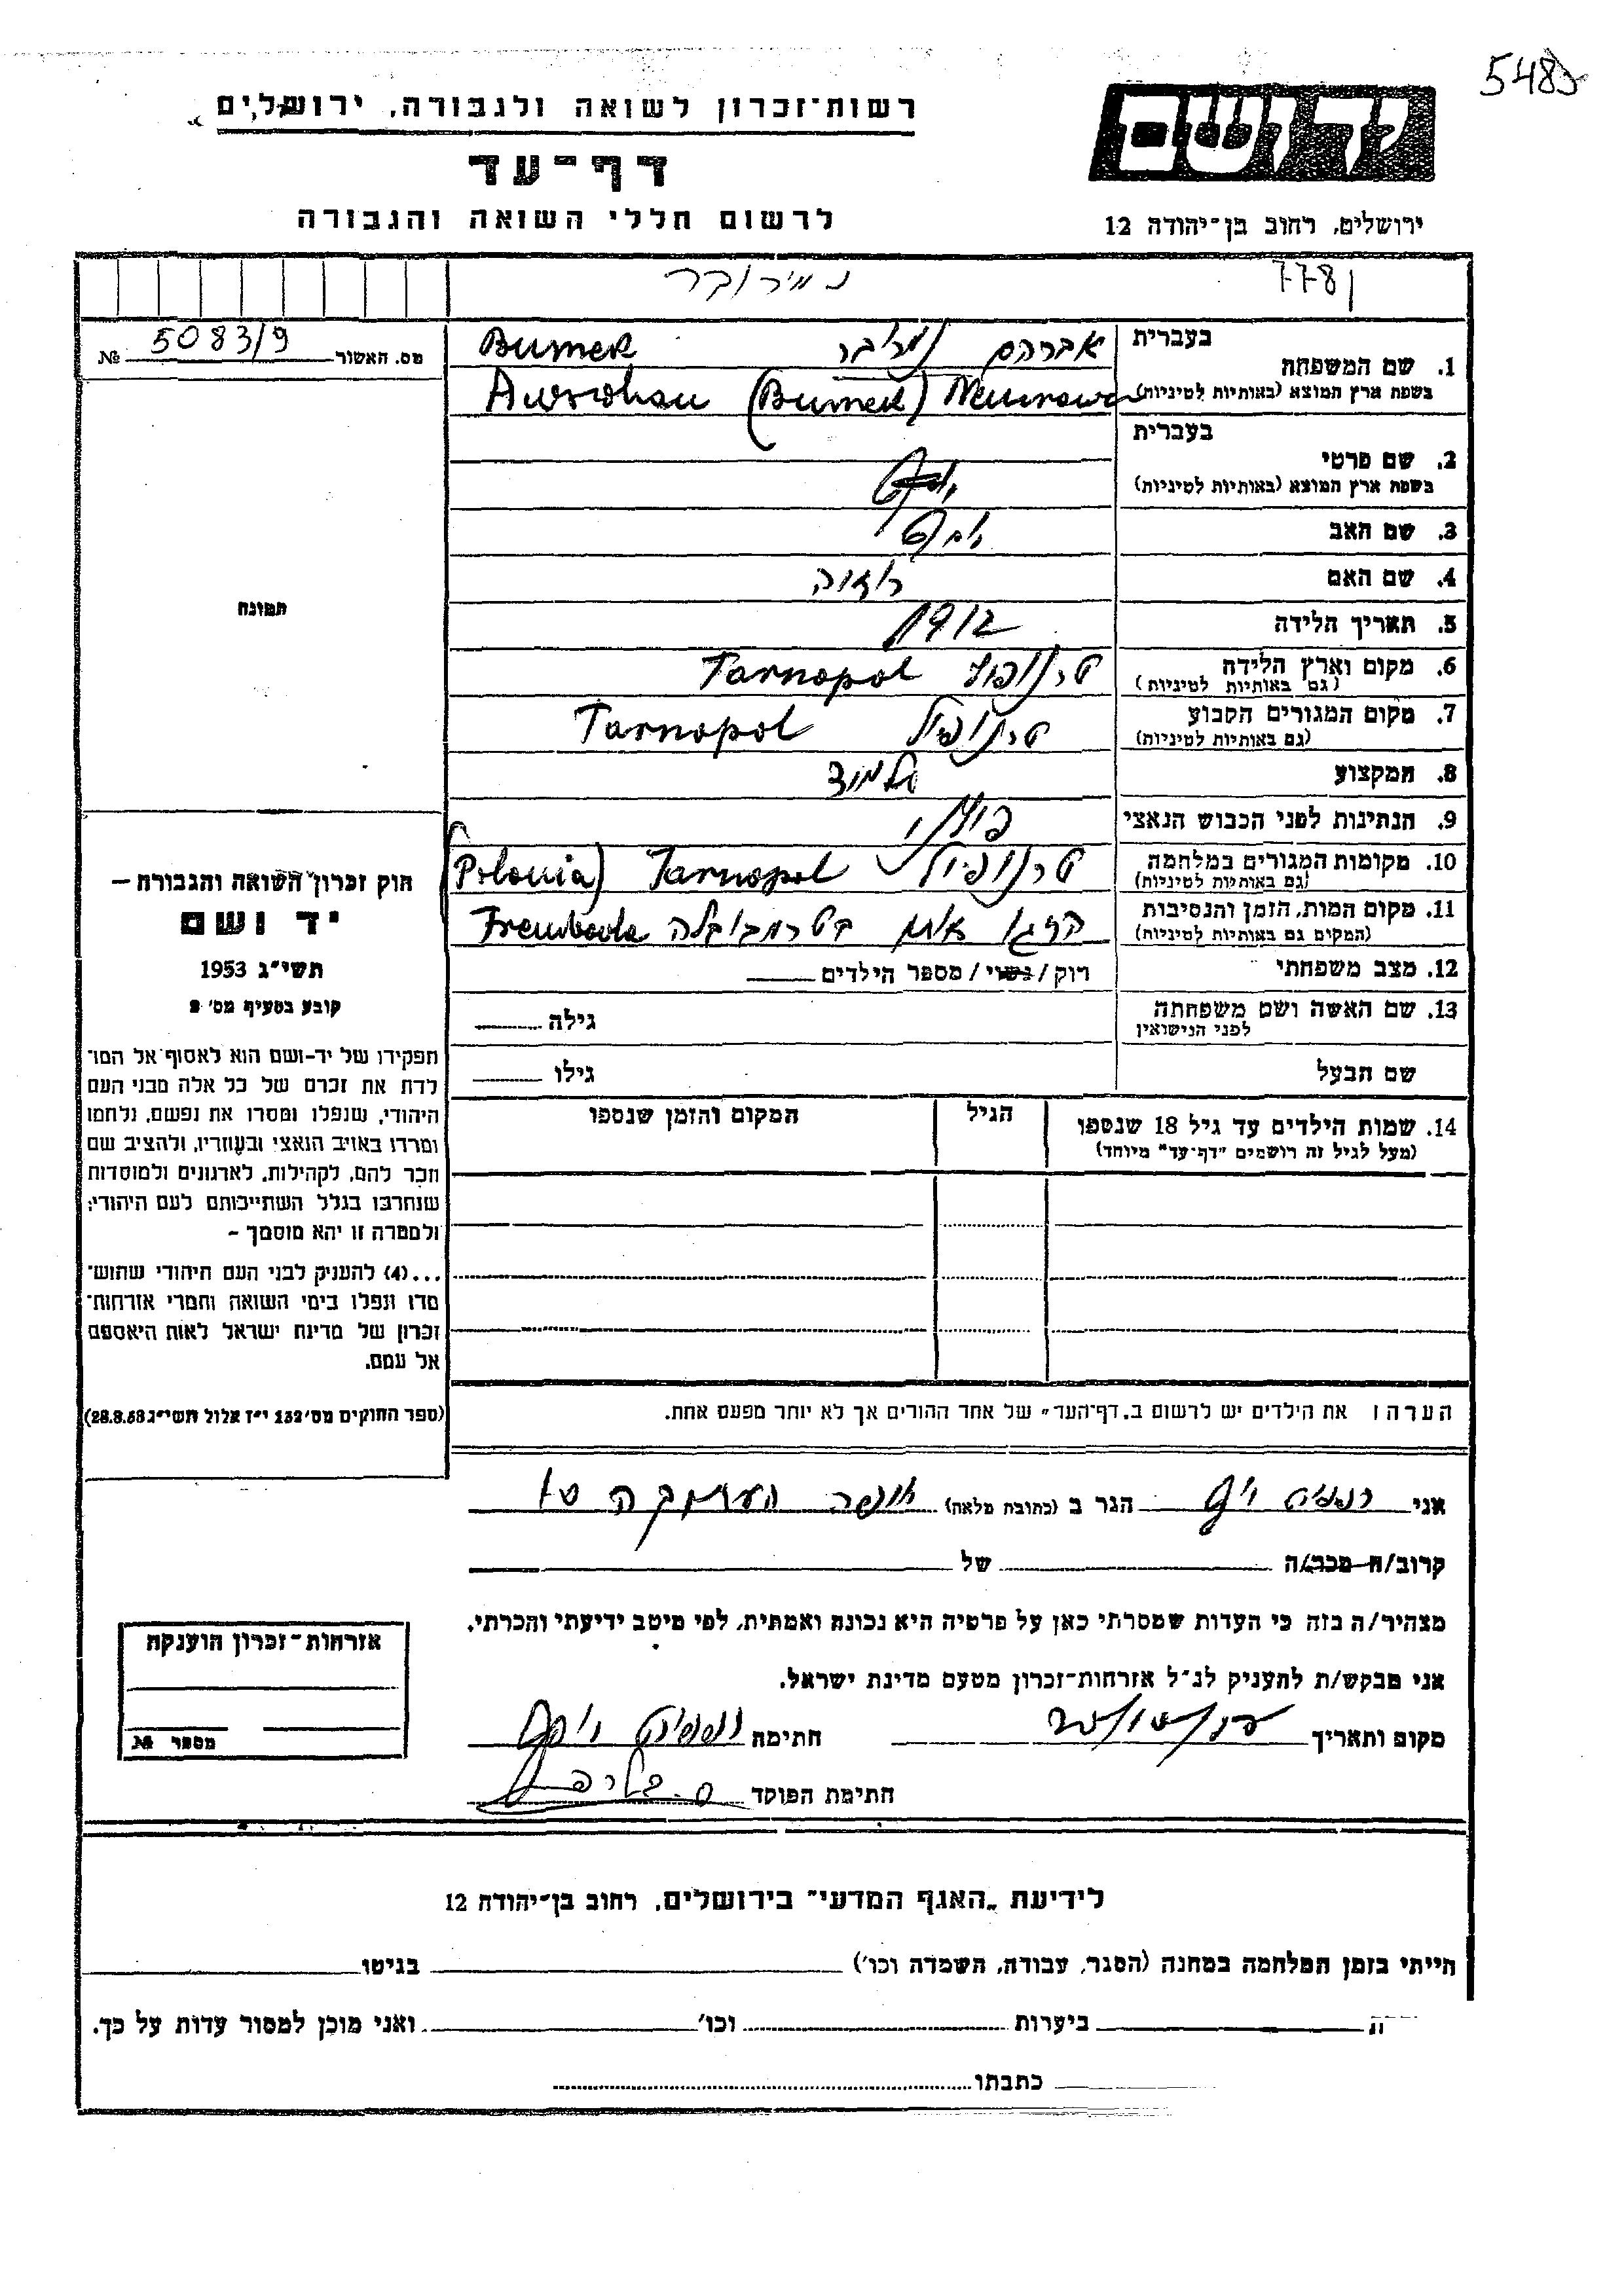 548
רשות־זכרון לשואה ולגבורה, ירושלים
דף־עד
לרשום חללי השואה והגבורה
יד ושם
ירושלים, רחוב בן־יהודה 12
778
מס. האשור 5083/9 №
בעברית
1. שם המשפחה
בשפת ארץ המוצא (באותיות לטיניות)
אברהם Bumek
(Bumek)
בעברית
2. שם פרטי
בשפת ארץ המוצא (באותיות לטיניות)
3. שם האב
4. שם האם רוזה
5. תאריך הלידה 1912
6. מקום וארץ הלידה טרנופול Tarnopol
(גם באותיות לטיניות)
7. מקום המגורים הקבוע טרנופול Tarnopol
(גם באותיות לטיניות)
8. המקצוע
9. הנתינות לפני הכבוש הנאצי פולני
10. מקומות המגורים במלחמה טרנופול Tarnopol (Polonia)
(גם באותיות לטיניות)
11. מקום המות, הזמן והנסיבות
(המקום גם באותיות לטיניות)
12. מצב משפחתי רוק / נשוי / מספר הילדים
13. שם האשה ושם משפחתה
לפני הנישואין
גילה
שם הבעל גילו
14. שמות הילדים עד גיל 18 שנספו
(מעל לגיל זה רושמים "דף־עד" מיוחד)
הגיל
המקום והזמן שנספו
תמונה
חוק זכרון השואה והגבורה –
יד ושם
תשי"ג 1953
קובע בסעיף מס' 2
תפקידו של יד-ושם הוא לאסוף אל המו־
לדת את זכרם של כל אלה מבני העם
היהודי, שנפלו ומסרו את נפשם, נלחמו
ומרדו באויב הנאצי ובעוזריו, ולהציב שם
וזכר להם, לקהילות, לארגונים ולמוסדות
שנחרבו בגלל השתייכותם לעם היהודי;
ולמטרה זו יהא מוסמך –
...(4) להעניק לבני העם היהודי שהוש־
מדו ונפלו בימי השואה והמרי אזרחות־
זכרון של מדינת ישראל לאות היאספם
אל עמם.
(ספר החוקים מס' 132 י"ז אלול תשי"ג 28.8.53)
הערה: את הילדים יש לרשום ב„דף־העד" של אחד ההורים אך לא יותר מפעם אחת.
אני הגר ב (כתובת מלאה)
קרוב/ה מכר/ה של
מצהיר/ה בזה כי העדות שמסרתי כאן על פרטיה היא נכונה ואמתית, לפי מיטב ידיעתי והכרתי.
אני מבקש/ת להעניק לנ"ל אזרחות־זכרון מטעם מדינת ישראל.
מקום ותאריך חתימה
חתימת הפוקד
אזרחות־זכרון הוענקה
מספר №
לידיעת „האגף המדעי" בירושלים, רחוב בן־יהודה 12
הייתי בזמן המלחמה במחנה (הסגר, עבודה, השמדה וכו') בגיטו
ביערות וכו' ואני מוכן למסור עדות על כך.
כתבתו